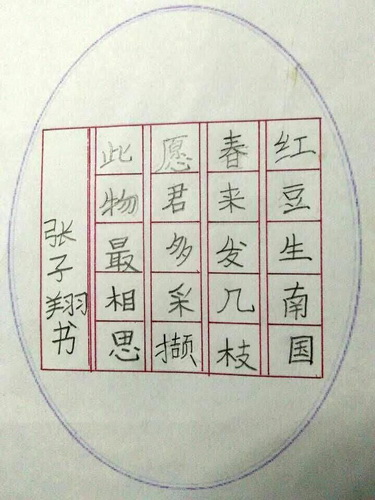 红豆生南国
春来发几枝
愿君多采撷
此物最相思
张子翔书